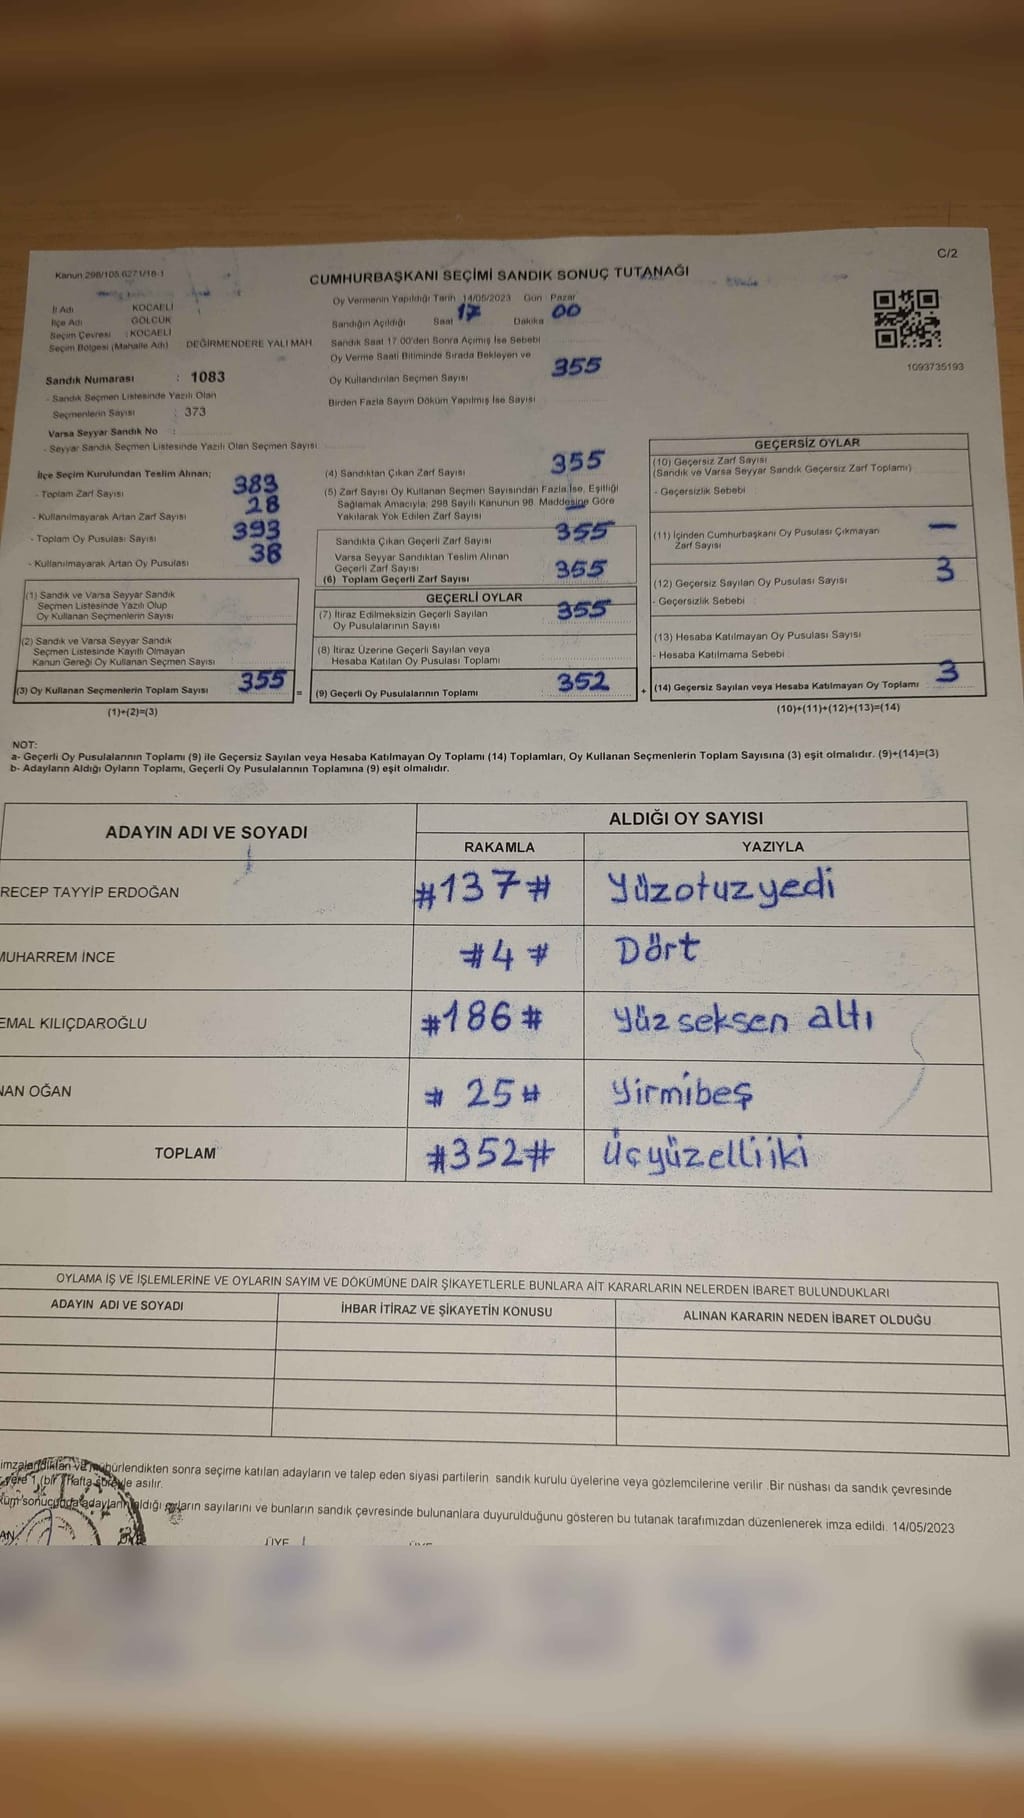 C/2
Kanun 298/105.6271/16-1
CUMHURBAŞKANI SEÇİMİ SANDIK SONUÇ TUTANAĞI
İl Adı KOCAELİ
İlçe Adı GÖLCÜK
Seçim Çevresi : KOCAELİ
Seçim Bölgesi (Mahalle Adı) DEĞİRMENDERE YALI MAH
Sandık Numarası : 1083
- Sandık Seçmen Listesinde Yazılı Olan
Seçmenlerin Sayısı : 373
Varsa Seyyar Sandık No :
- Seyyar Sandık Seçmen Listesinde Yazılı Olan Seçmen Sayısı
Oy Vermenin Yapıldığı Tarih 14/05/2023 Gün : Pazar
Sandığın Açıldığı Saat 17 Dakika 00
Sandık Saat 17.00'den Sonra Açımış İse Sebebi
Oy Verme Saati Bitiminde Sırada Bekleyen ve
Oy Kullandırılan Seçmen Sayısı 355
Birden Fazla Sayım Döküm Yapılmış İse Sayısı
1093735193
İlçe Seçim Kurulundan Teslim Alınan;
- Toplam Zarf Sayısı 383
- Kullanılmayarak Artan Zarf Sayısı 28
- Toplam Oy Pusulası Sayısı 393
- Kullanılmayarak Artan Oy Pusulası 38
(1) Sandık ve Varsa Seyyar Sandık
Seçmen Listesinde Yazılı Olup
Oy Kullanan Seçmenlerin Sayısı
(2) Sandık ve Varsa Seyyar Sandık
Seçmen Listesinde Kayıtlı Olmayan
Kanun Gereği Oy Kullanan Seçmen Sayısı
(3) Oy Kullanan Seçmenlerin Toplam Sayısı 355 =
(1)+(2)=(3)
(4) Sandıktan Çıkan Zarf Sayısı 355
(5) Zarf Sayısı Oy Kullanan Seçmen Sayısından Fazla İse, Eşitliği
Sağlamak Amacıyla; 298 Sayılı Kanunun 98. Maddesine Göre
Yakılarak Yok Edilen Zarf Sayısı —
Sandıkta Çıkan Geçerli Zarf Sayısı 355
Varsa Seyyar Sandıktan Teslim Alınan
Geçerli Zarf Sayısı
(6) Toplam Geçerli Zarf Sayısı 355
GEÇERLİ OYLAR
(7) İtiraz Edilmeksizin Geçerli Sayılan
Oy Pusulalarının Sayısı 355
(8) İtiraz Üzerine Geçerli Sayılan veya
Hesaba Katılan Oy Pusulası Toplamı
(9) Geçerli Oy Pusulalarının Toplamı 352 +
GEÇERSİZ OYLAR
(10) Geçersiz Zarf Sayısı
(Sandık ve Varsa Seyyar Sandık Geçersiz Zarf Toplamı)
- Geçersizlik Sebebi
(11) İçinden Cumhurbaşkanı Oy Pusulası Çıkmayan
Zarf Sayısı —
(12) Geçersiz Sayılan Oy Pusulası Sayısı 3
- Geçersizlik Sebebi
(13) Hesaba Katılmayan Oy Pusulası Sayısı
- Hesaba Katılmama Sebebi
(14) Geçersiz Sayılan veya Hesaba Katılmayan Oy Toplamı 3
(10)+(11)+(12)+(13)=(14)
NOT:
a- Geçerli Oy Pusulalarının Toplamı (9) ile Geçersiz Sayılan veya Hesaba Katılmayan Oy Toplamı (14) Toplamları, Oy Kullanan Seçmenlerin Toplam Sayısına (3) eşit olmalıdır. (9)+(14)=(3)
b- Adayların Aldığı Oyların Toplamı, Geçerli Oy Pusulalarının Toplamına (9) eşit olmalıdır.
ADAYIN ADI VE SOYADI ALDIĞI OY SAYISI
RAKAMLA YAZIYLA
RECEP TAYYİP ERDOĞAN #137# Yüzotuzyedi
MUHARREM İNCE #4# Dört
EMAL KILIÇDAROĞLU #186# Yüz seksen altı
NAN OĞAN #25# Yirmibeş
TOPLAM #352# Üçyüzelliiki
OYLAMA İŞ VE İŞLEMLERİNE VE OYLARIN SAYIM VE DÖKÜMÜNE DAİR ŞİKAYETLERLE BUNLARA AİT KARARLARIN NELERDEN İBARET BULUNDUKLARI
ADAYIN ADI VE SOYADI İHBAR İTİRAZ VE ŞİKAYETİN KONUSU ALINAN KARARIN NEDEN İBARET OLDUĞU
imzalandıktan ve mühürlendikten sonra seçime katılan adayların ve talep eden siyasi partilerin sandık kurulu üyelerine veya gözlemcilerine verilir. Bir nüshası da sandık çevresinde
yere 1 (bir) Hafta süreyle asılır.
küm sonucunda adayların aldığı oyların sayılarını ve bunların sandık çevresinde bulunanlara duyurulduğunu gösteren bu tutanak tarafımızdan düzenlenerek imza edildi. 14/05/2023
ÜYE